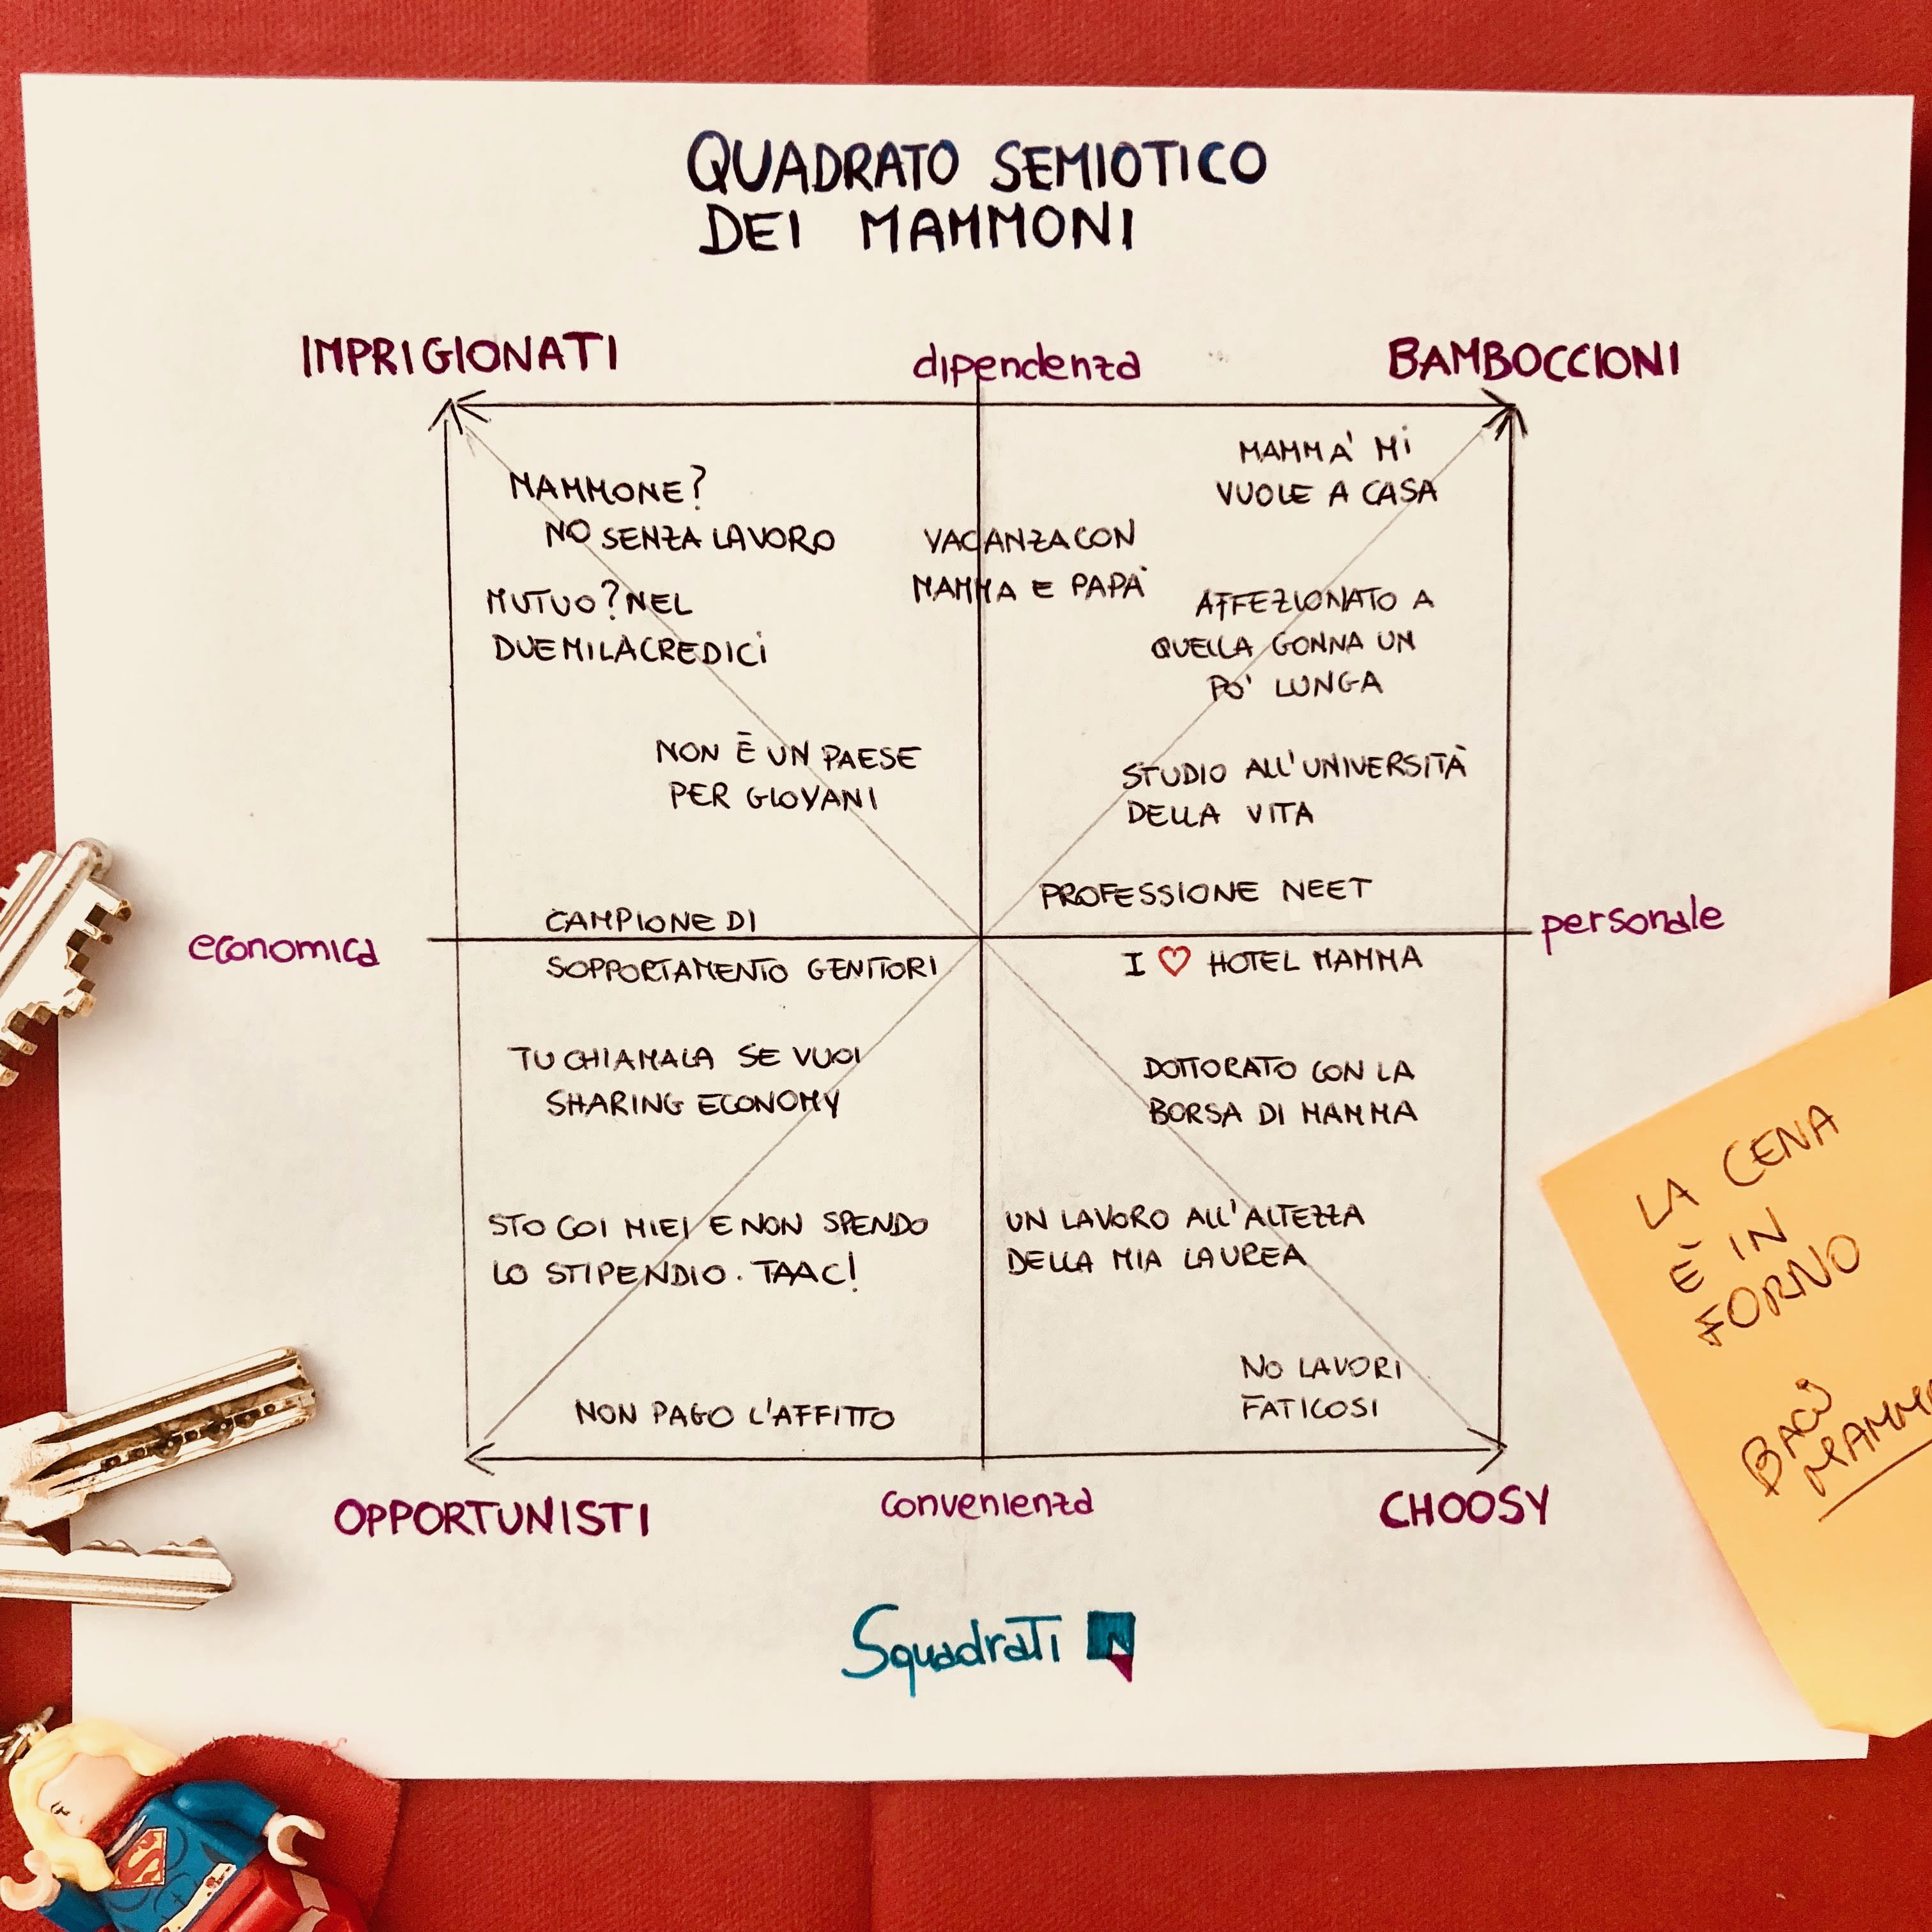 QUADRATO SEMIOTICO
DEI MAMMONI
IMPRIGIONATI
dipendenza
BAMBOCCIONI
MAMMA' MI
VUOLE A CASA
MAMMONE?
NO SENZA LAVORO
VACANZA CON
MAMMA E PAPA'
MUTUO? NEL
DUEMILACREDICI
AFFEZIONATO A
QUELLA GONNA UN
PO' LUNGA
NON È UN PAESE
PER GIOVANI
STUDIO ALL'UNIVERSITÀ
DELLA VITA
PROFESSIONE NEET
economica
personale
CAMPIONE DI
SOPPORTAMENTO GENITORI
I ♡ HOTEL MAMMA
TU CHIAMALA SE VUOI
SHARING ECONOMY
DOTTORATO CON LA
BORSA DI MAMMA
STO COI MIEI E NON SPENDO
LO STIPENDIO. TAAC!
UN LAVORO ALL'ALTEZZA
DELLA MIA LAUREA
NO LAVORI
FATICOSI
NON PAGO L'AFFITTO
OPPORTUNISTI
convenienza
CHOOSY
Squadrati
LA CENA
È IN
FORNO
BACI
MAMMA